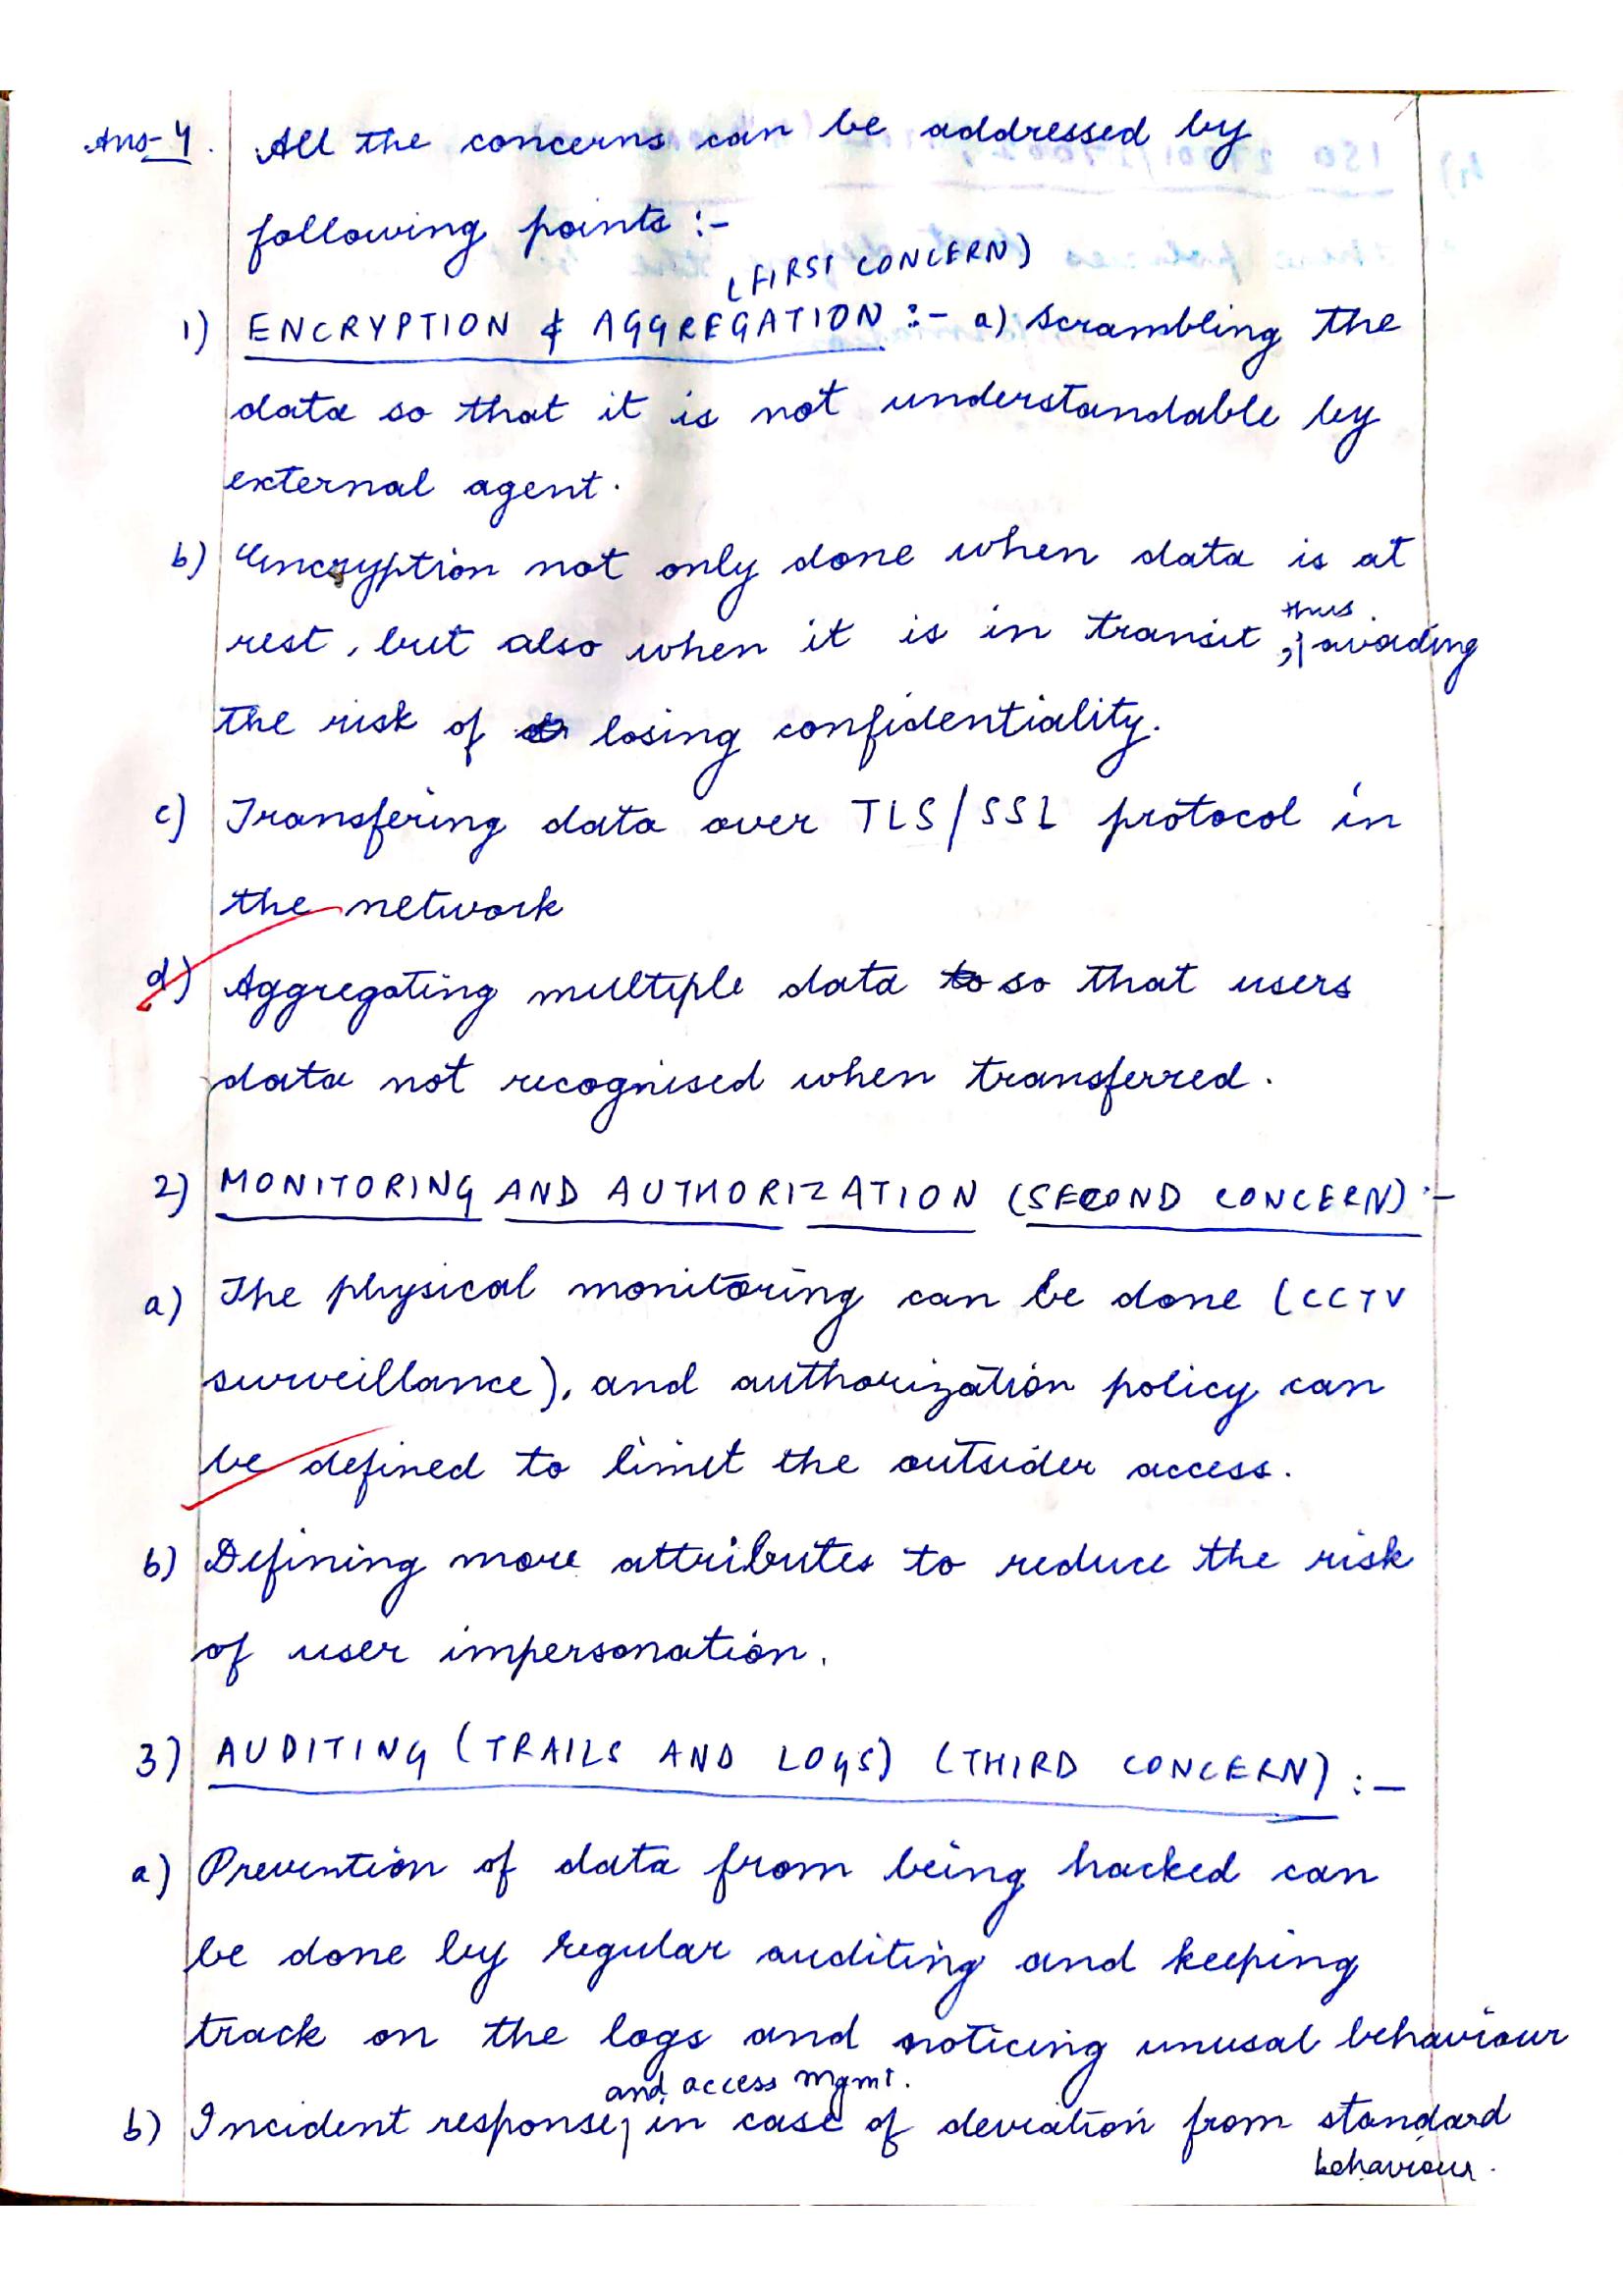 Ans-4. All the concerns can be addressed by
following points :-
(FIRST CONCERN)
1) ENCRYPTION & AGGREGATION :- a) Scrambling the
data so that it is not understandable by
external agent.
b) Encryption not only done when data is at
rest, but also when it is in transit, thus avoiding
the risk of losing confidentiality.
c) Transfering data over TLS/SSL protocol in
the network
d) Aggregating multiple data so that users
data not recognised when transferred.
2) MONITORING AND AUTHORIZATION (SECOND CONCERN) :-
a) The physical monitoring can be done (CCTV
surveillance), and authorization policy can
be defined to limit the outsider access.
b) Defining more attributes to reduce the risk
of user impersonation.
3) AUDITING (TRAILS AND LOGS) (THIRD CONCERN) :-
a) Prevention of data from being hacked can
be done by regular auditing and keeping
track on the logs and noticing unusal behaviour
b) Incident response, and access mgmt. in case of deviation from standard
behaviour.